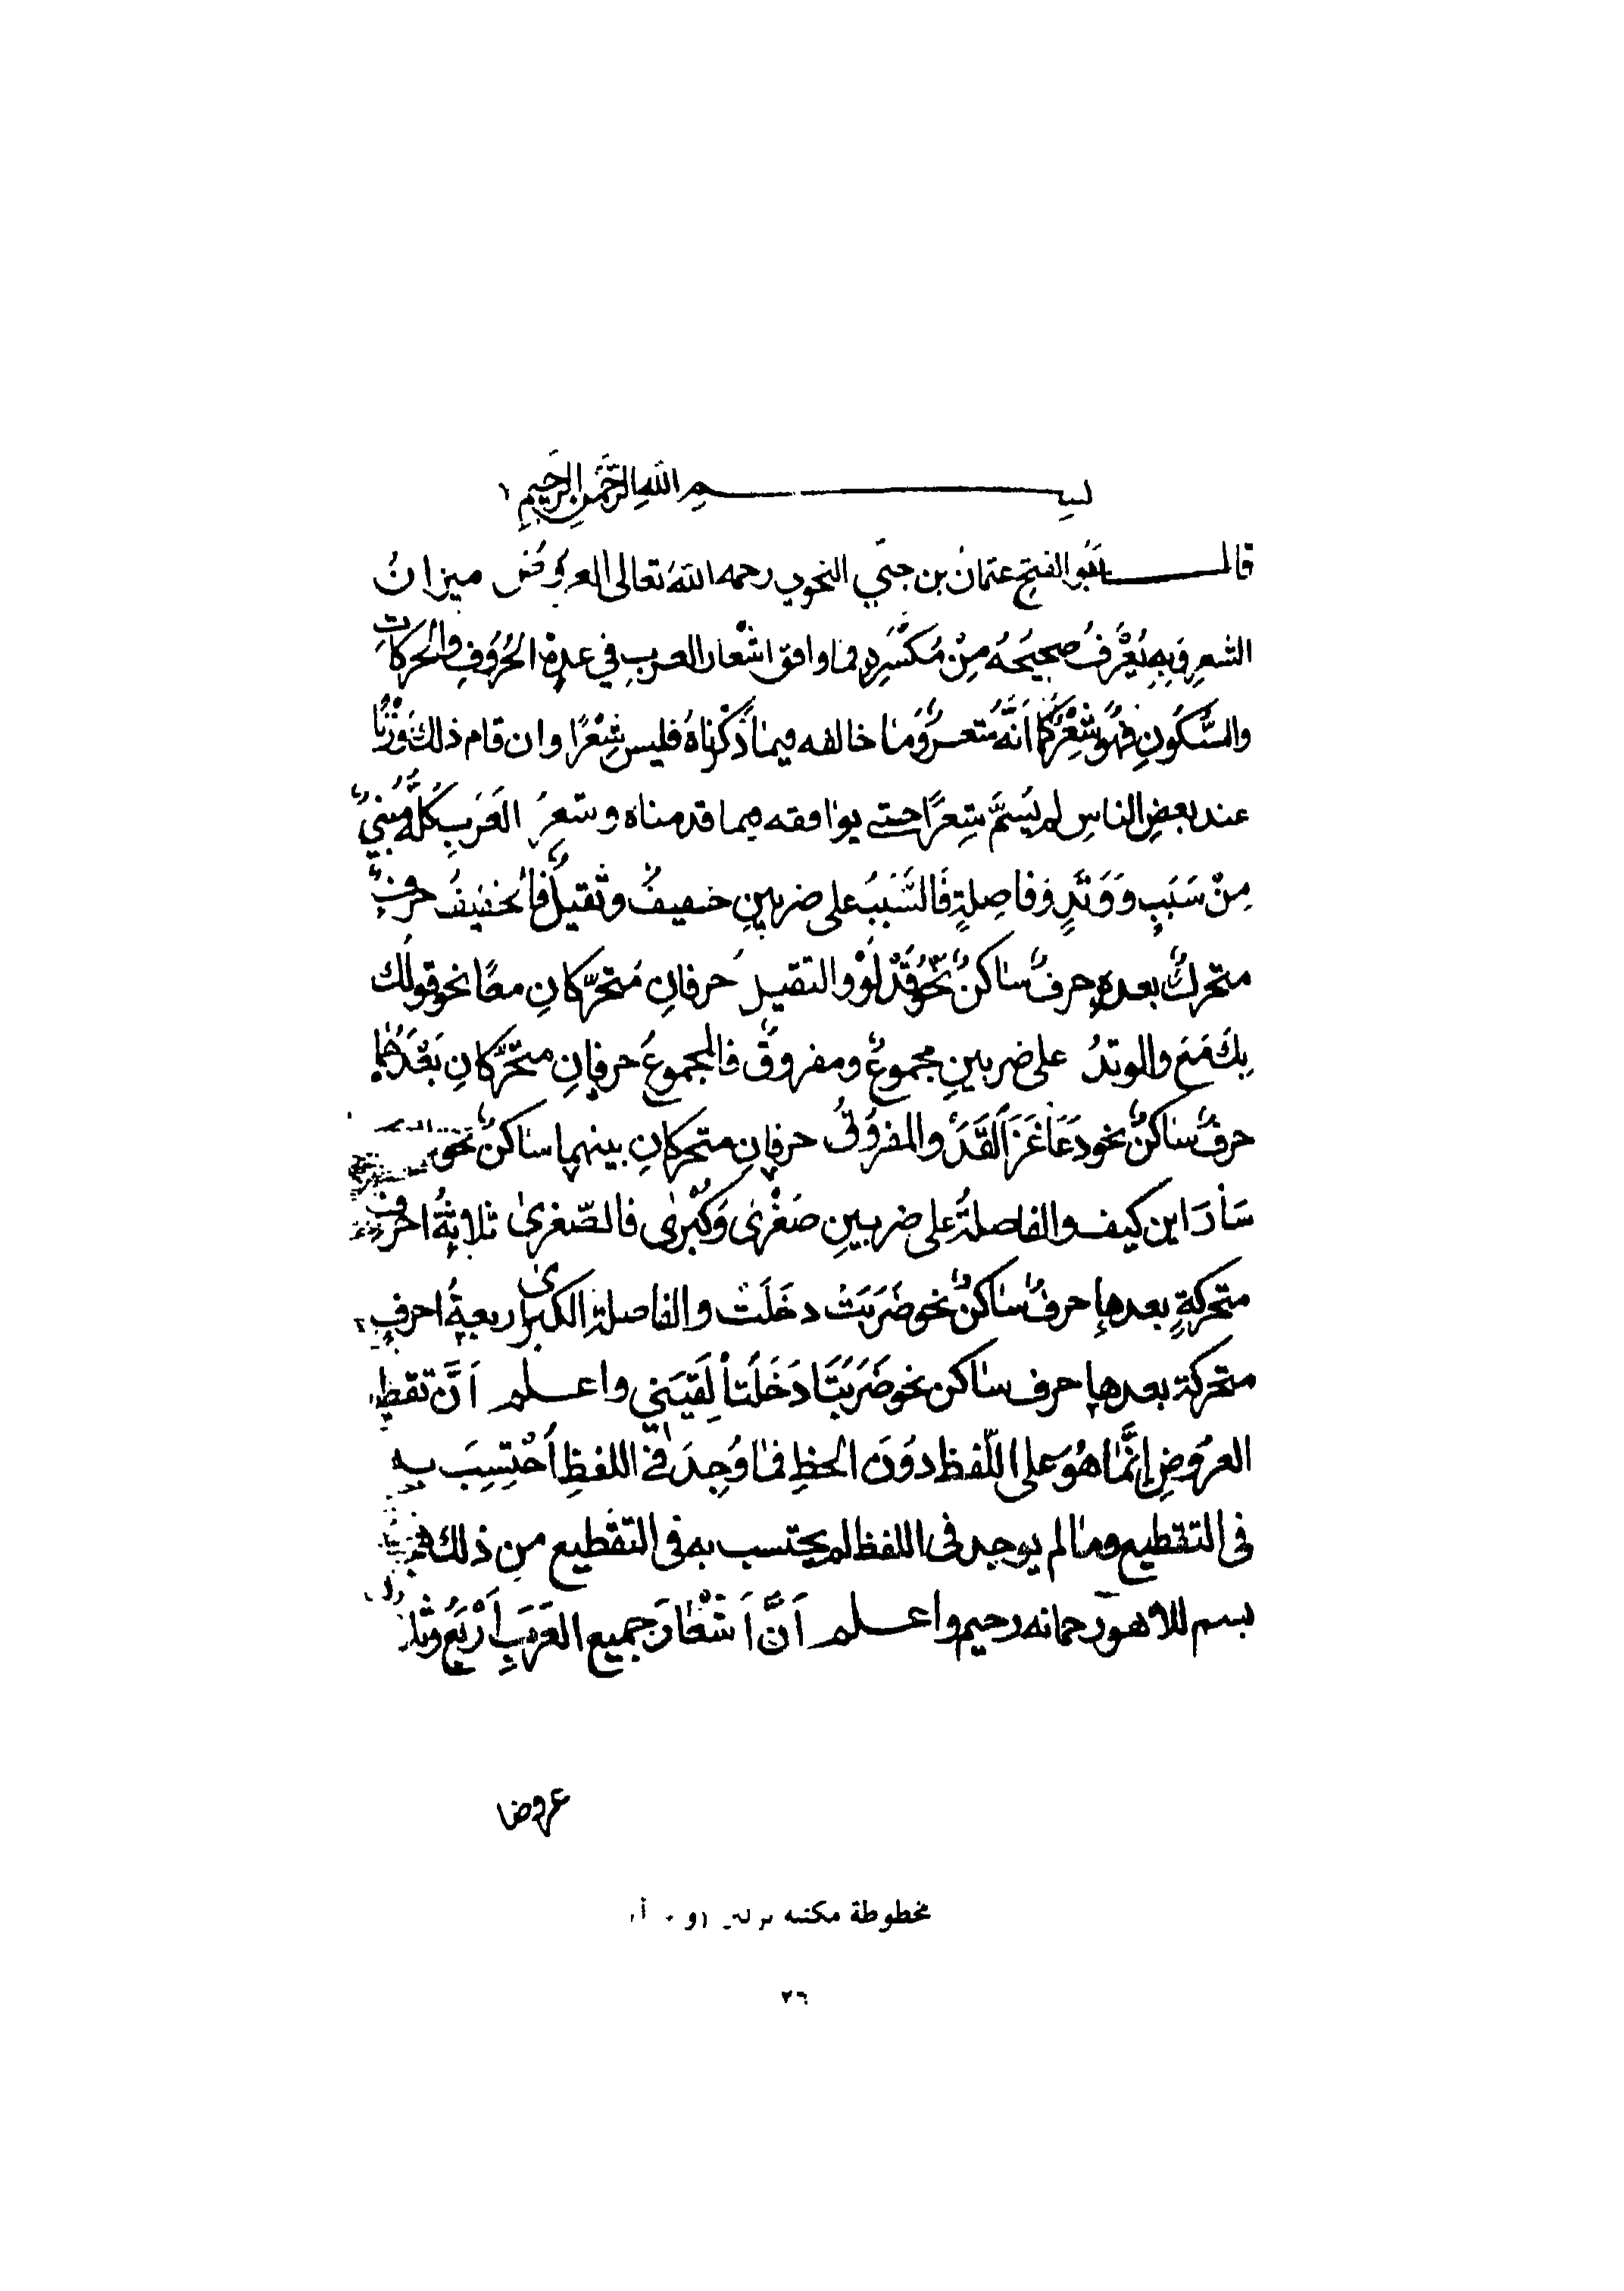 بسم الله الرحمن الرحيم
قال أبو الفتح عثمان بن جني النحوي رحمه الله تعالى العروض ميزان
الشعر وبه يُعْرَفُ صحيحُهُ مِنْ مُكَسَّرِهِ فما وافق اشْعار العرب في عدة الحُرُوفِ والحركاتِ
والسُّكُونِ فَهُوَ شِعْرٌ كما أنَّهُ مُتَعَرٍّ وَما خالفه فيما ذَكَرْناهُ فليس شِعْرًا وان قام ذلك وَزْنًا
عند بعضِ الناسِ لم يُسَمَّ شِعرًا حتى يوافقه فيما قدمناه وشعرُ العَرَبِ كُلُّهُ مَبْنِيٌّ
مِنْ سَبَبٍ وَوَتَدٍ وَفاصِلةٍ فَالسَّبَبُ على ضربينِ خفيفٌ وثقيلٌ فالخفيفُ حرفٌ
متحركٌ بعده حرفٌ ساكنٌ نَحْوُ قَدْ لَوْ والثقيل حرفانِ مُتَحَرِّكانِ معًا نحو قولك
بِكَ مَعَ والوتدُ على ضربينِ مجموعٌ ومفروقٌ فالمجموعُ حرفانِ متحَرِّكانِ بَعْدَهُما
حرفٌ ساكنٌ نحو دَعَا غَزَا لَقَدْ والمفروقُ حرفانِ متحركانِ بينهما ساكنٌ نحو
سَارَ اين كيف والفاصلةُ على ضربينِ صُغْرَى وَكُبْرَى فالصّغرى ثلاثةُ احرفٍ
متحركةٍ بعدها حرفٌ ساكنٌ نحو ضَرَبَتْ دخَلَتْ والفاصلة الكبرى اربعةُ احرفٍ
متحركة بعدها حرف ساكن نحو ضَرَبَتَا دَخَلَتا لَقِيَني واعلم أنَّ تقطيع
العَرُوضِ إنَّمَا هُوَ على اللّفظ دُونَ الخطِ فما وُجِدَ في اللفظِ اُحْتِسِبَ به
في التقطيع وما لم يوجد في اللفظ لم يحتسب به في التقطيع من ذلك
بسم للاهر رحمانر رحيم واعلم أنَّ أشْعَارَ جميع العَرَبِ أرْبَعٌ وثلاثون
عروضا
مخطوطة مكتبه برلين
٢٦